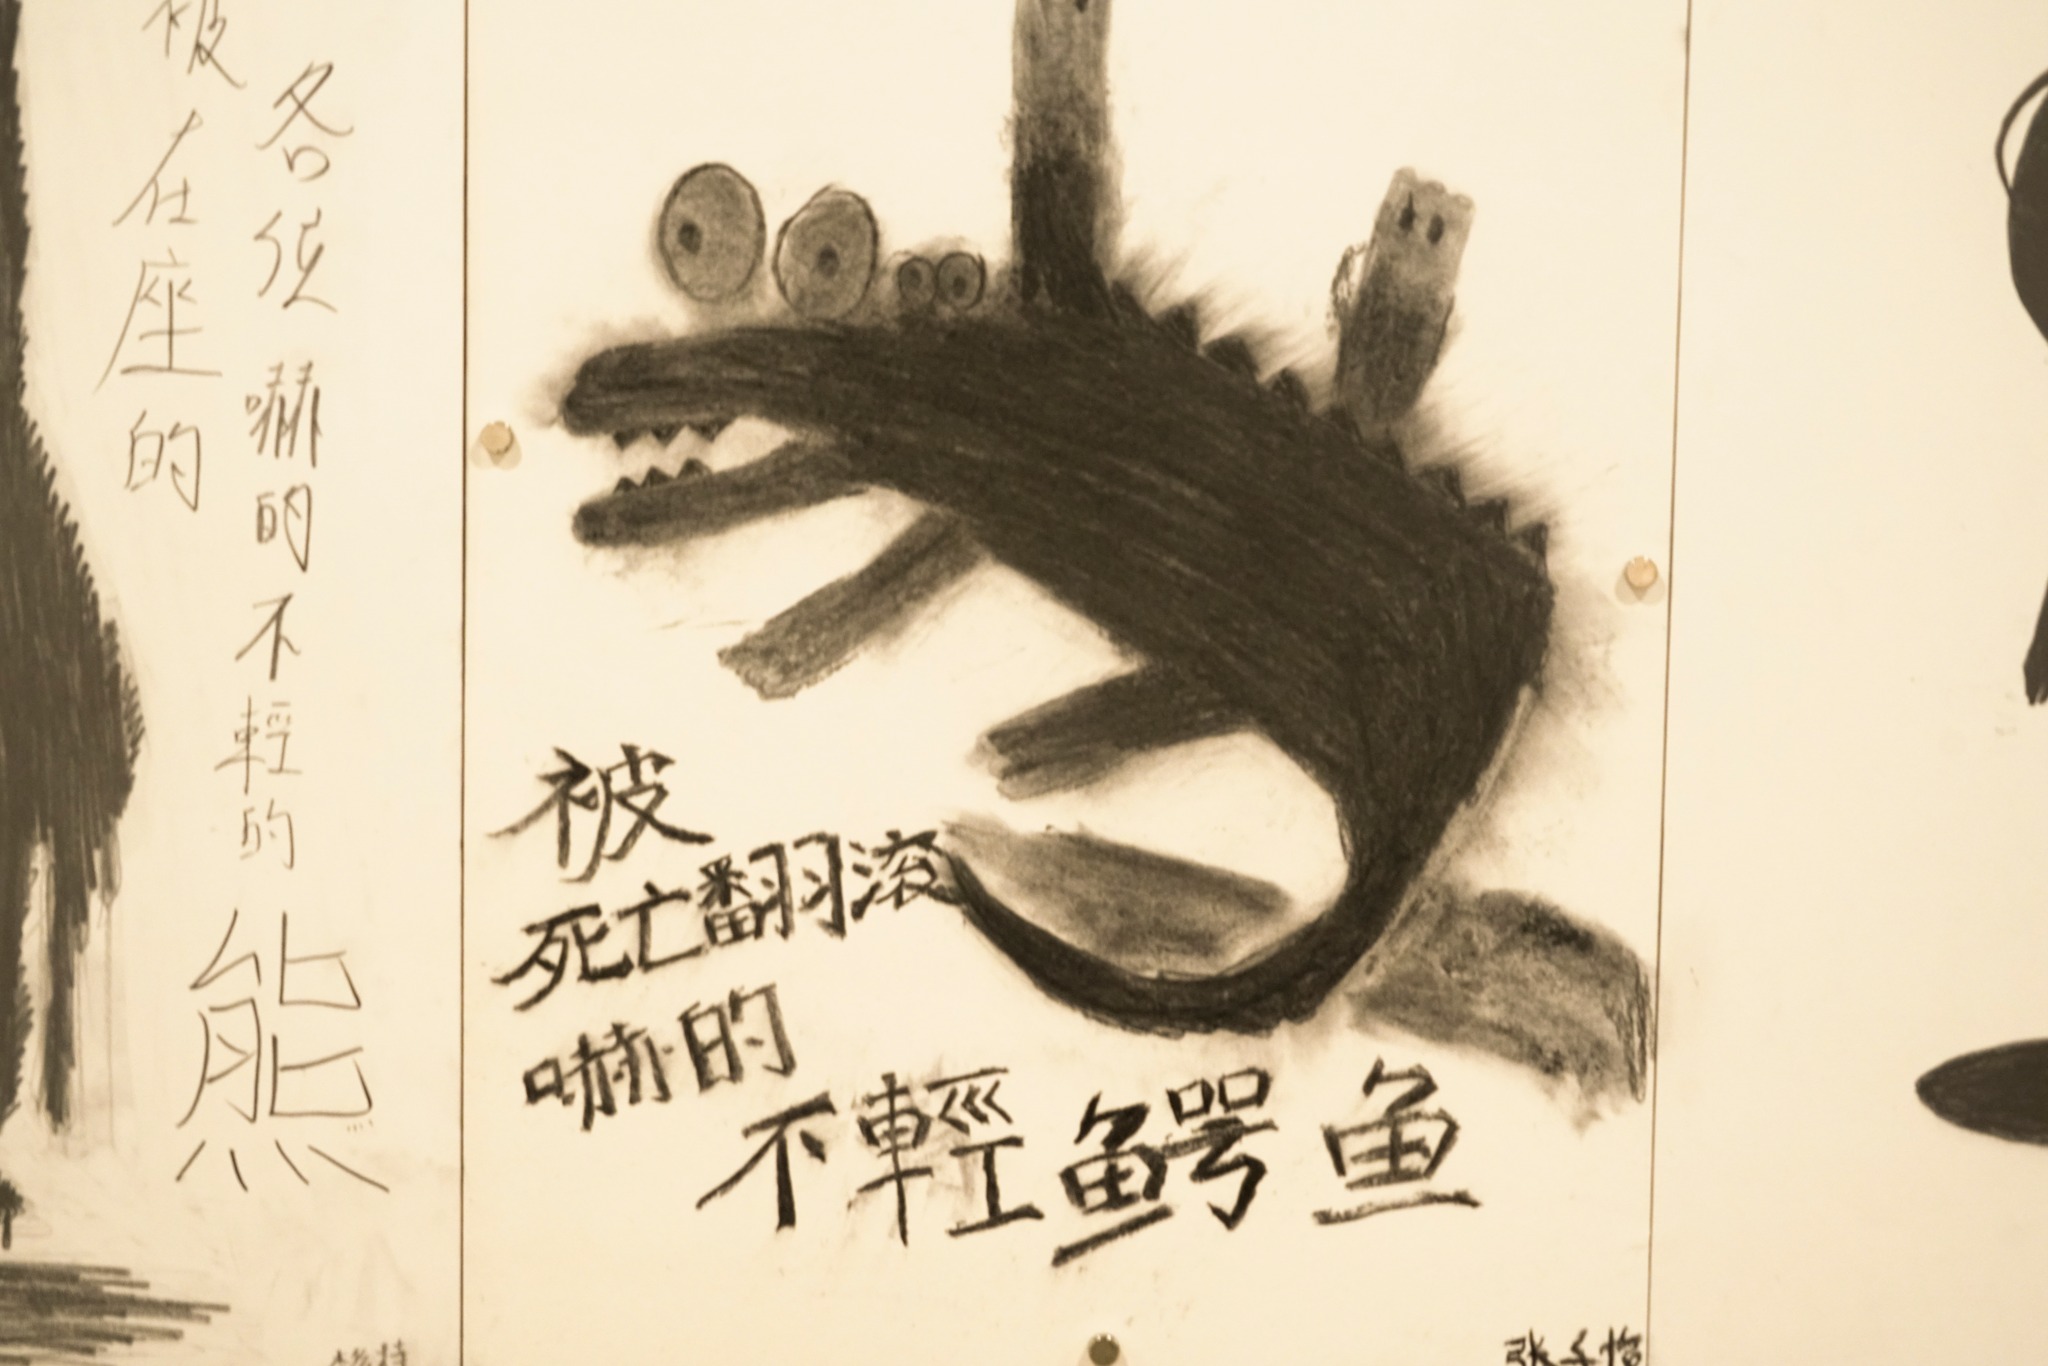 被在座的
各位嚇的不輕的熊
被
死亡翻滚
嚇的
不輕鳄鱼
张